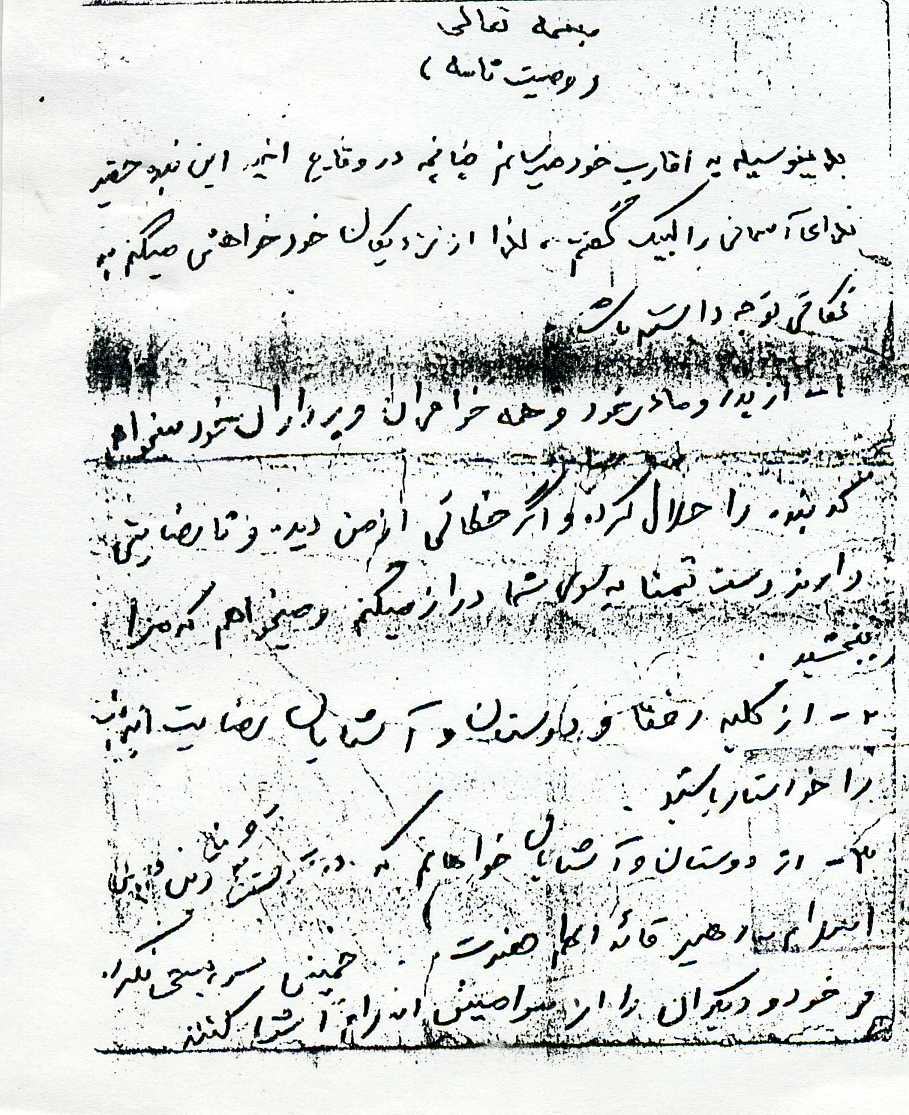 بسمه تعالی
(وصیت نامه)
بدینوسیله به اقارب خود میرسانم چنانچه در وقایع اخیر این بنده حقیر
ندای آسمانی را لبیک گفتم، لذا از نزدیکان خود خواهش میکنم به
نکاتی توجه داشته باشند
۱- از پدر و مادر خود و همه خواهران و برادران خود میخواهم
که بنده را حلال کرده و اگر خطائی از من دیده و نارضایتی
دارند دست تمنا به سوی شما دراز میکنم و میخواهم که مرا
ببخشید.
۲- از کلیه رفقا و دوستان و آشنایان رضایت
را خواستار باشید.
۳- از دوستان و آشنایان خواهانم که در
رهبر قائد خمینی سرپیچی نکرده
و خود و دیگران را از آشنا کنند